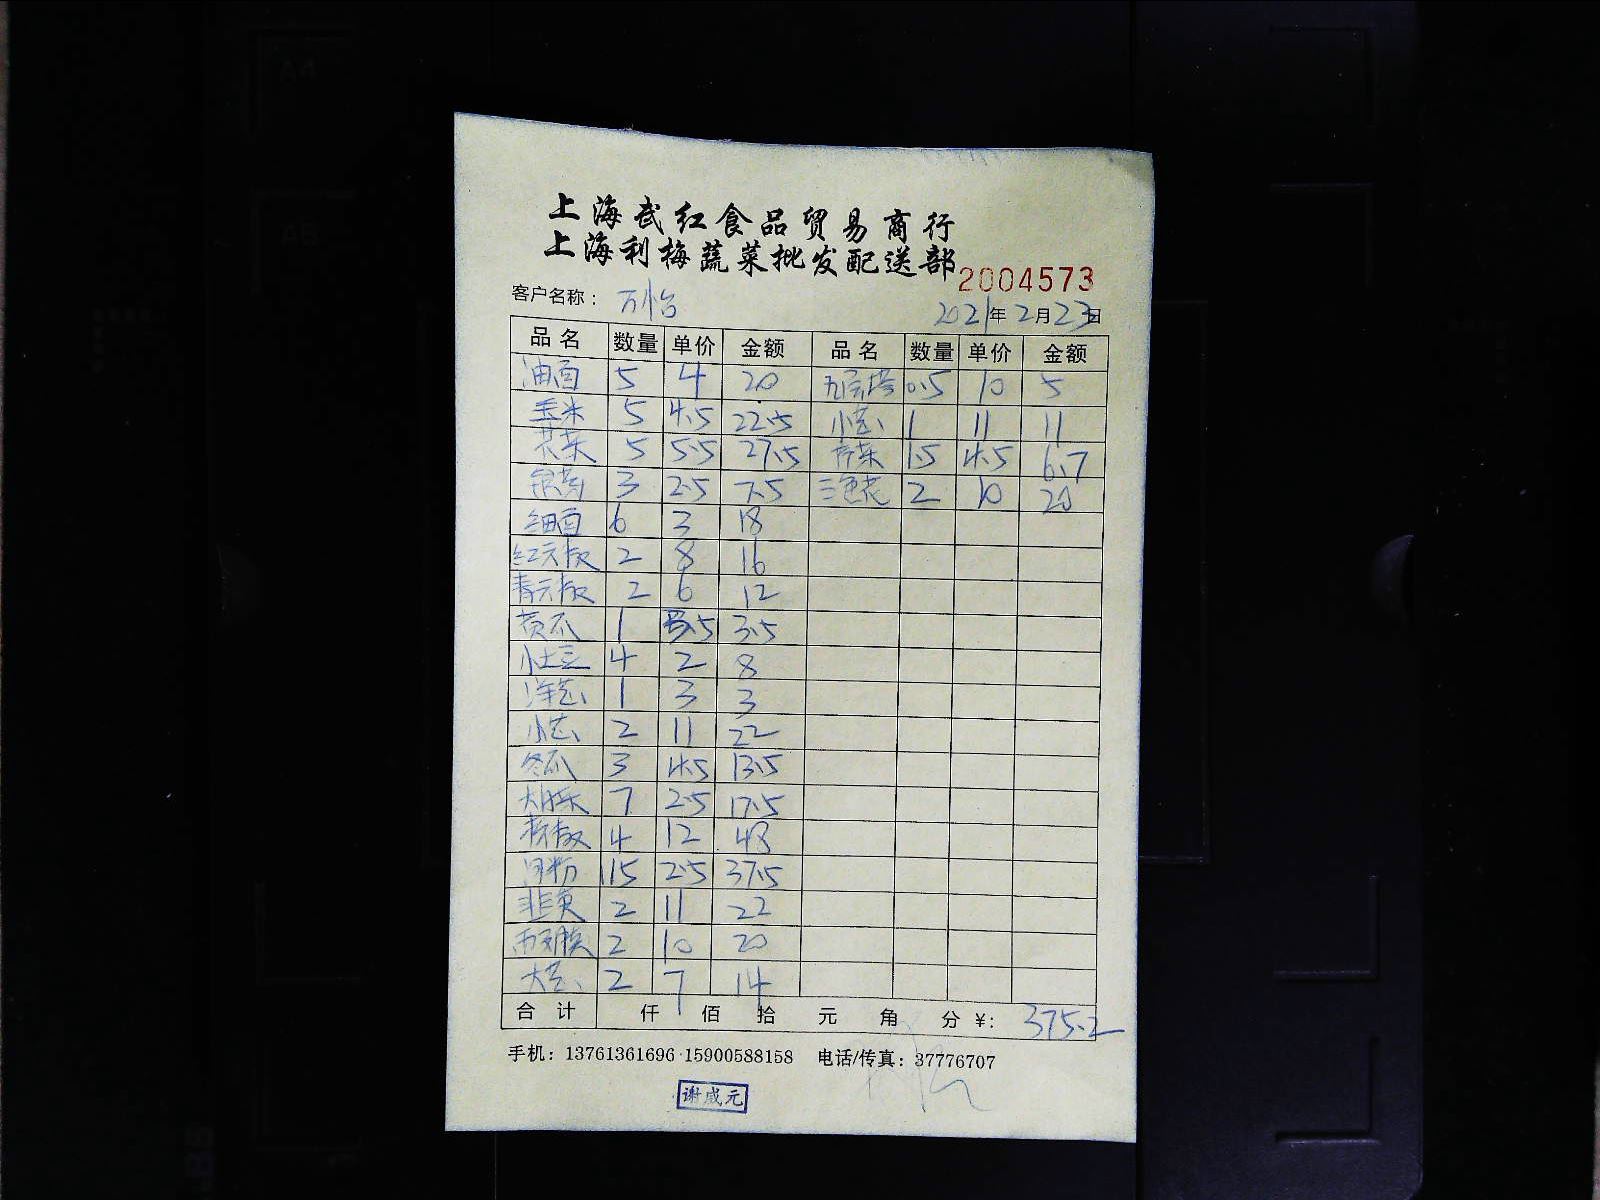 上海武红食品贸易商行
上海利梅蔬菜批发配送部
2004573
客户名称： 万怡 2021年2月23日
品名 数量 单价 金额 品名 数量 单价 金额
油面 5 4 20 九层塔 0.5 10 5
玉米 5 4.5 22.5 小葱 1 11 11
花菜 5 5.5 27.5 芹菜 1.5 4.5 6.7
银芽 3 2.5 7.5 三色花 2 10 20
细面 6 3 18
红元椒 2 8 16
青元椒 2 6 12
黄瓜 1 3.5 3.5
小土豆 4 2 8
洋葱 1 3 3
小葱 2 11 22
冬瓜 3 4.5 13.5
大白菜 7 2.5 17.5
杭椒 4 12 48
河粉 15 2.5 37.5
韭黄 2 11 22
2 10 20
大葱 2 7 14
合计 仟 佰 拾 元 角 分 ¥: 375.2
手机：13761361696 15900588158 电话/传真：37776707
谢成元